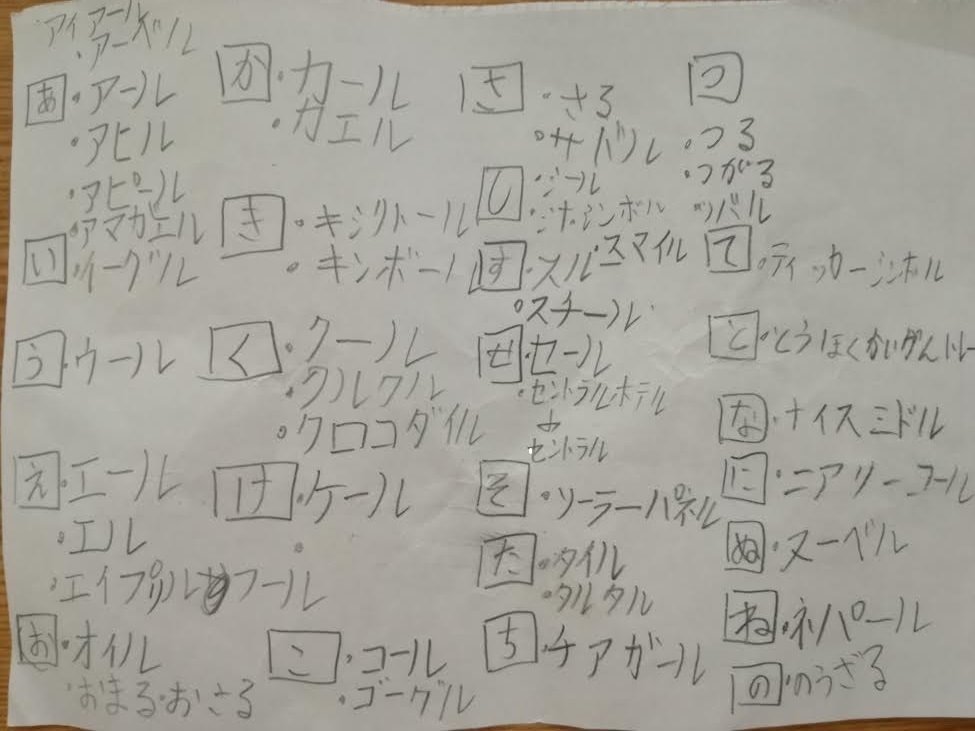 アイアール
・アーベル
あ・アール
・アヒル
・アピール
・アマガエル
い・イーグル
う・ウール
え・エール
・エル
・エイプリルフール
お・オイル
・おまる・おさる
か・カール
・ガエル
き・キシリトール
・キンボール
く・クール
・クルクル
・クロコダイル
け・ケール
こ・コール
・ゴーグル
さ・さる
・サバル
し・シール
・シンボル
す・スル・スマイル
・スチール
せ・セール
・セントラルホテル
セントラル
そ・ソーラーパネル
た・タイル
・タルタル
ち・チアガール
つ
・つる
・つがる
ツバル
て・ティッカーシンボル
と・とうほくかいがん
な・ナイスミドル
に・ニアリーコール
ぬ・ヌーベル
ね・ネパール
の・のうざる